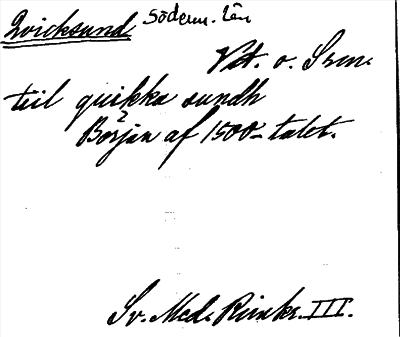 Qvicksund Söderm. län
Vst. o. Srm.
till quikka sundh
Början af 1500-talet.
Sv. Med. Rimkr. III.